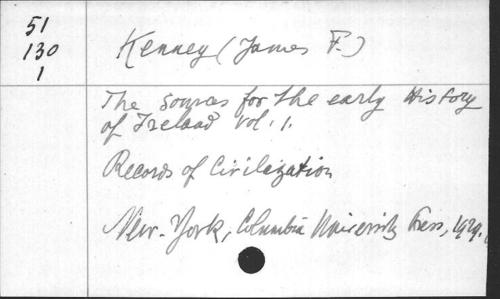 51
130
1
Kenney (James F.)
The sources for the early History
of Ireland Vol. 1.
Records of Civilization
New-York, Columbia University Press, 1929.